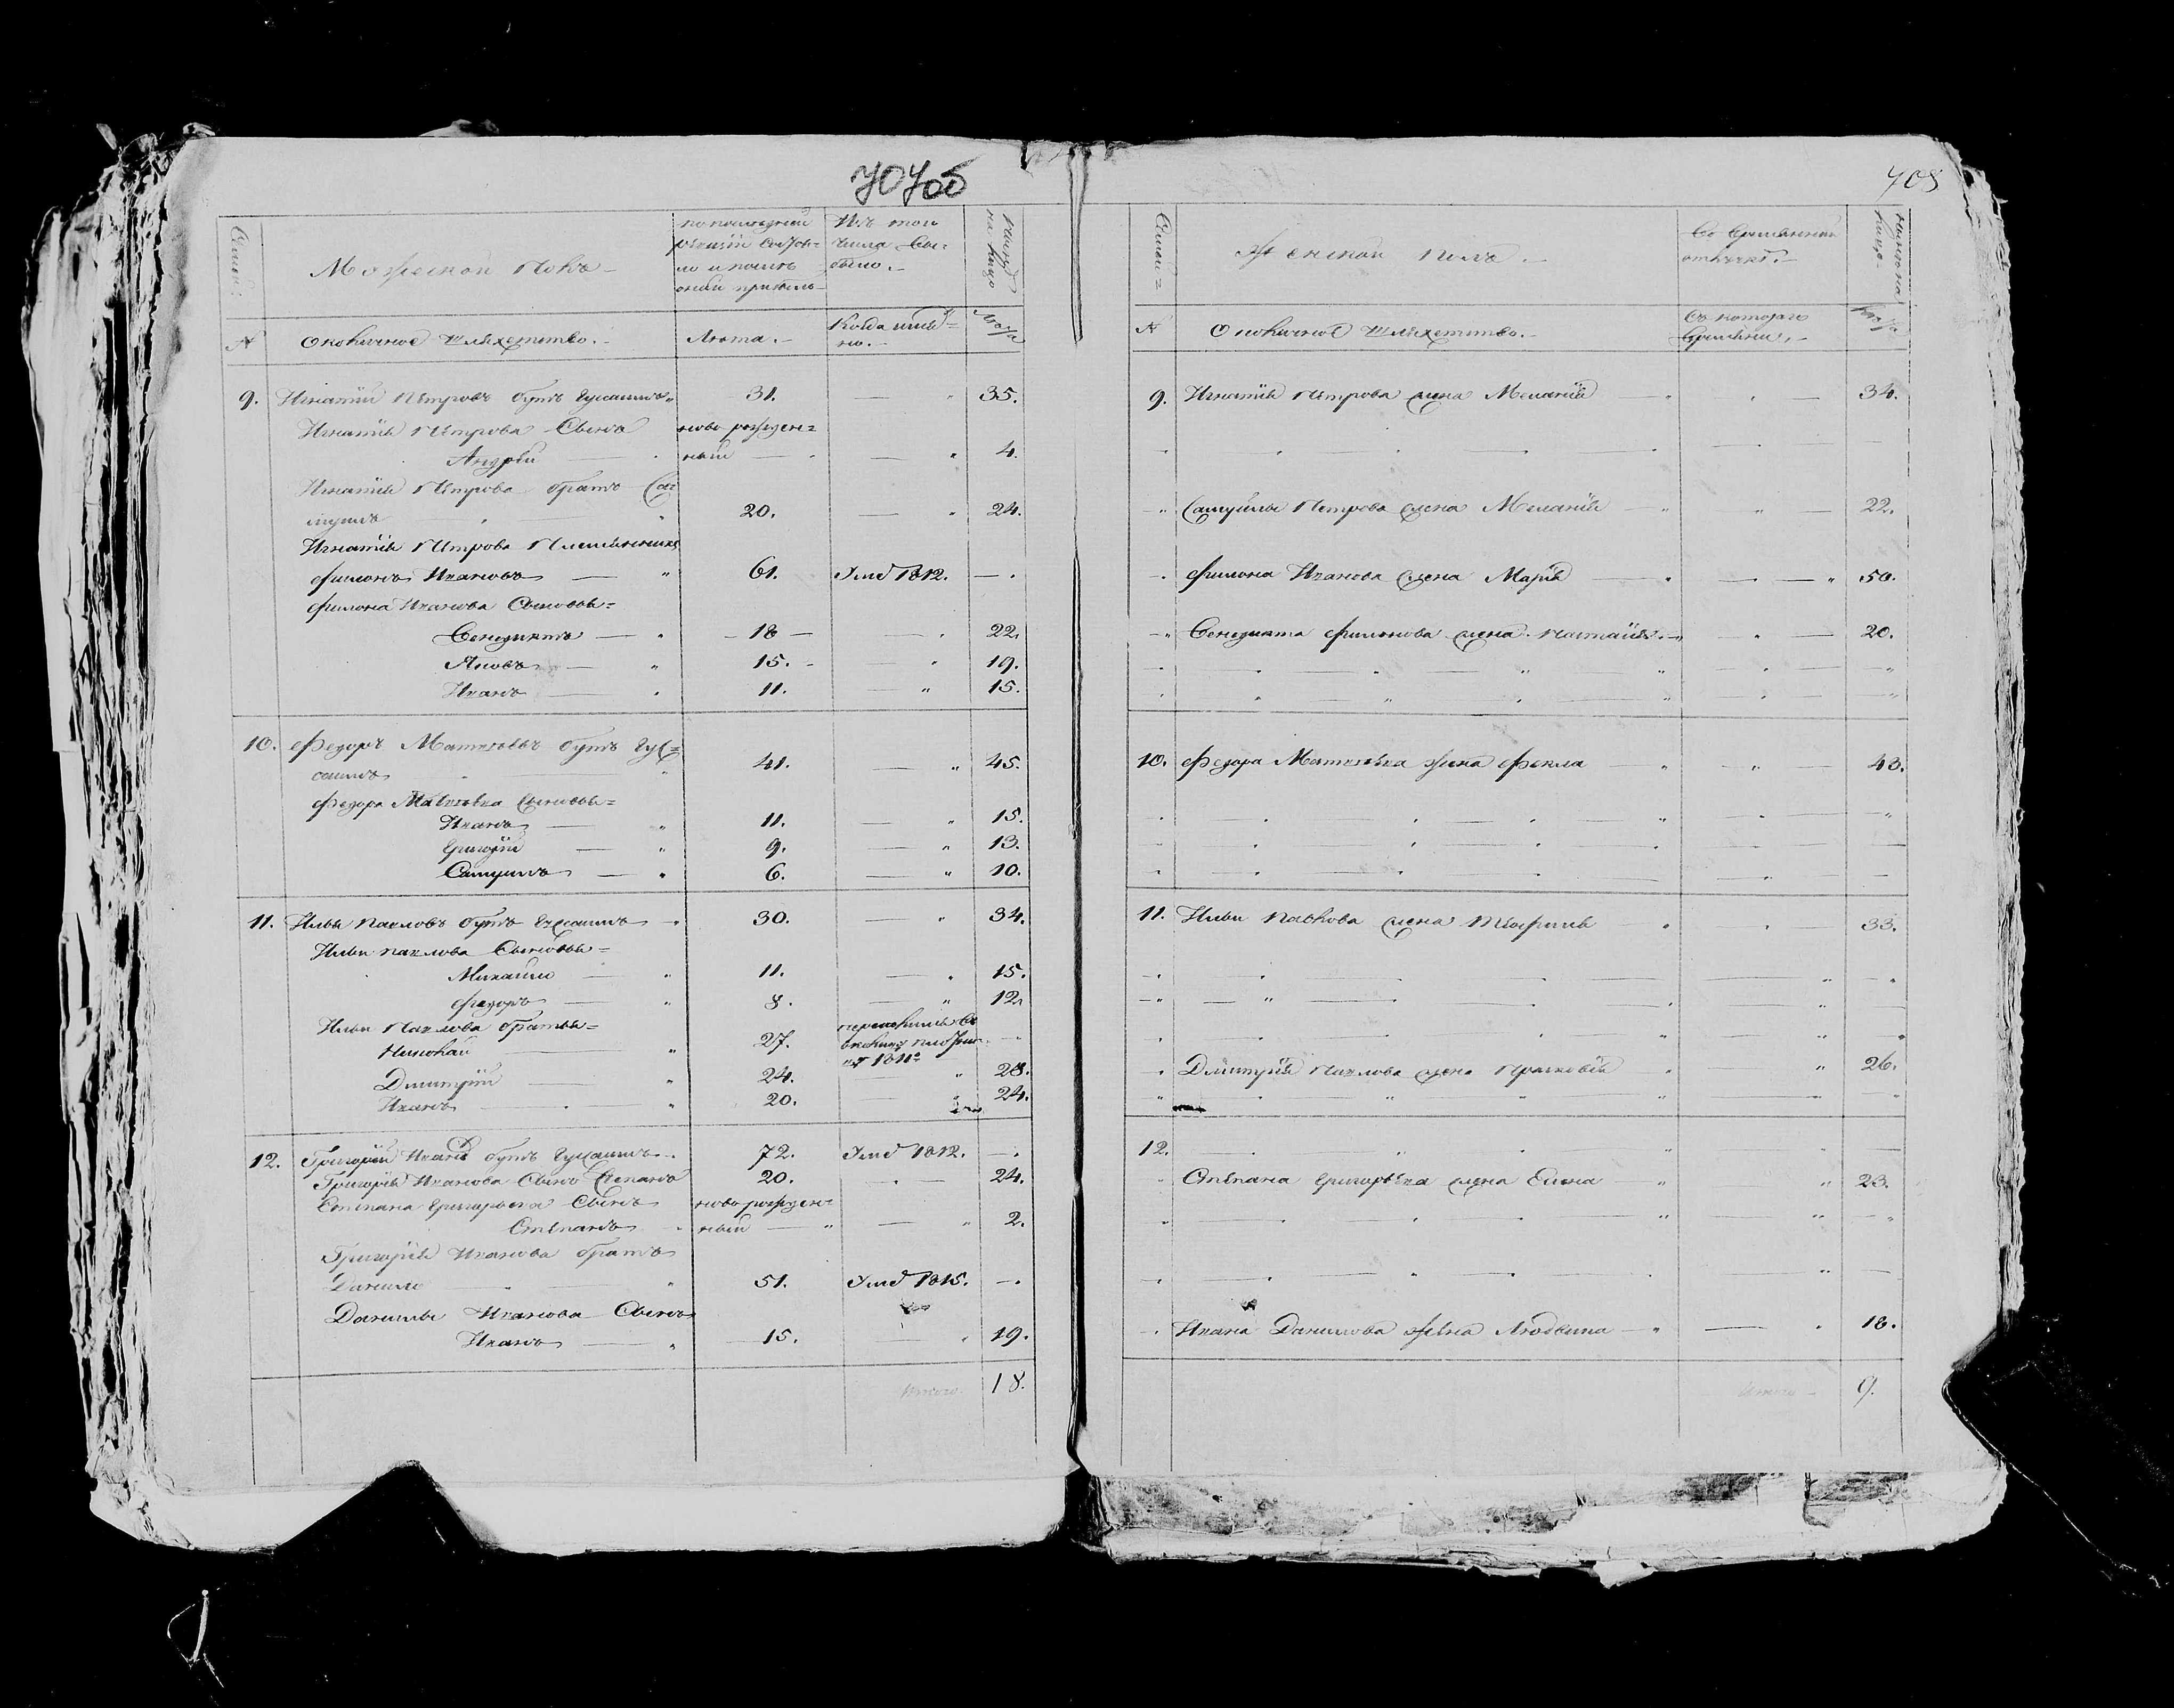 707об
Семьи
Мужеской полъ
по последней
ревизіи состоя=
ло и после
оной прибыло
Изъ того
числа вы=
было.
Ныне
на лицо
№
Околичное шляхетство.
Лета.
Когда имян=
но.
Лета
9. Игнатій Петровъ Бутъ Гусаимъ 31. — 35.
Игнатія Петрова Сынъ новорожден=
Андрей — ный — 4.
Игнатія Петрова братъ Са=
муилъ 20. — 24.
Игнатія Петрова Племянникъ
Филонъ Ивановъ — 61. Умре 1812. —
Филона Иванова Сыновья=
Бенедиктъ — 18 — 22.
Яковъ — 15. — 19.
Иванъ — 11. — 15.
10. Федоръ Матвеевъ Бутъ Гус=
саимъ 41. — 45.
Федора Матвеева Сыновья=
Иванъ — 11. — 15.
Григорій — 9. — 13.
Самуилъ — 6. — 10.
11. Илья Павловъ Бутъ Гусаимъ 30. — 34.
Ильи Павлова Сыновья=
Михайло — 11. — 15.
Федоръ — 8. — 12.
Ильи Павлова братья=
Николай 27.
1811
Дмитрій 24. 28.
Иванъ 20. 24.
12. Григорій Ивановъ Бутъ Гусаимъ 72. Умре 1812. —
Григорія Иванова Сынъ Степанъ 20. — 24.
Степана Григорьева Сынъ новорожден=
Степанъ ный — 2.
Григорія Иванова братъ
Данило 51. Умре 1815. —
Данилы Иванова Сынъ
Иванъ — 15. — 19.
Итого 18.
708
Семьи=
Женскои полъ.
Во временной
отлучке.
Ныне на
лицо
№
Околичное шляхетство.
Съ котораго
времени.
Лета
9. Игнатія Петрова жена Меланія — 34.
Самуйлы Петрова жена Меланія — 22.
Филона Иванова жена Марія — 50.
Бенедикта Филонова жена Наталія. — 20.
10. Федора Матвеева жена Фекла — 43.
11. Ильи Павлова жена Теофиля 33.
Дмитрія Павлова жена Прасковія 26.
12.
Степана Григорьева жена Елена — 23.
Ивана Данилова жена Людвина — 18.
Итого 9.